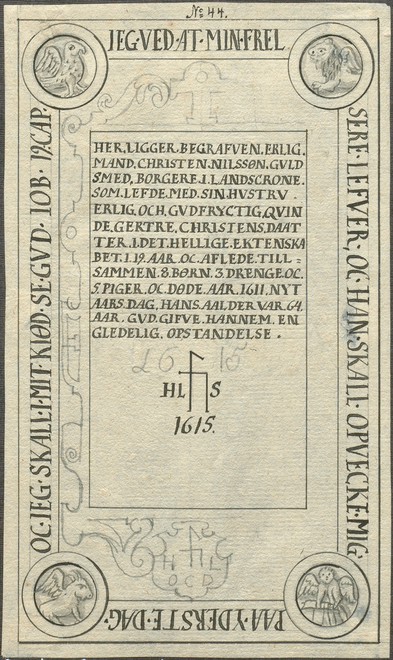 No 44.
JEG·VED·AT·MIN·FREL
SERE·LEFVER,·OC·HAN·SKALL·OPVECKE·MIG
PAA·YDERSTE·DAG·
OC·IEG·SKALL·I·MIT·KIØD·SE·GVD·IOB·19.CAP.
HER.LIGGER.BEGRAFVEN.ERLIG.
MAND.CHRISTEN.NILSSØN.GVLD
SMED,BORGERE.I.LANDSCRONE.
SOM.LEFDE.MED.SIN.HVSTRV.
ERLIG.OCH.GVDFRYCTIG.QVIN
DE,GERTRE,CHRISTENS.DAAT
TER.I.DET.HELLIGE.EKTENSKA
BET.I.19.AAR.OC.AFLEDE.TILL=
SAMMEN.8.BØRN.3.DRENGE.OC.
5.PIGER.OC.DØDE.AAR.1611.NYT
AARS.DAG,HANS.AALDER.VAR.64.
AAR.GVD.GIFVE.HANNEM.EN
GLEDELIG.OPSTANDELSE.
16 15
HL S
1615.
H L
O C D